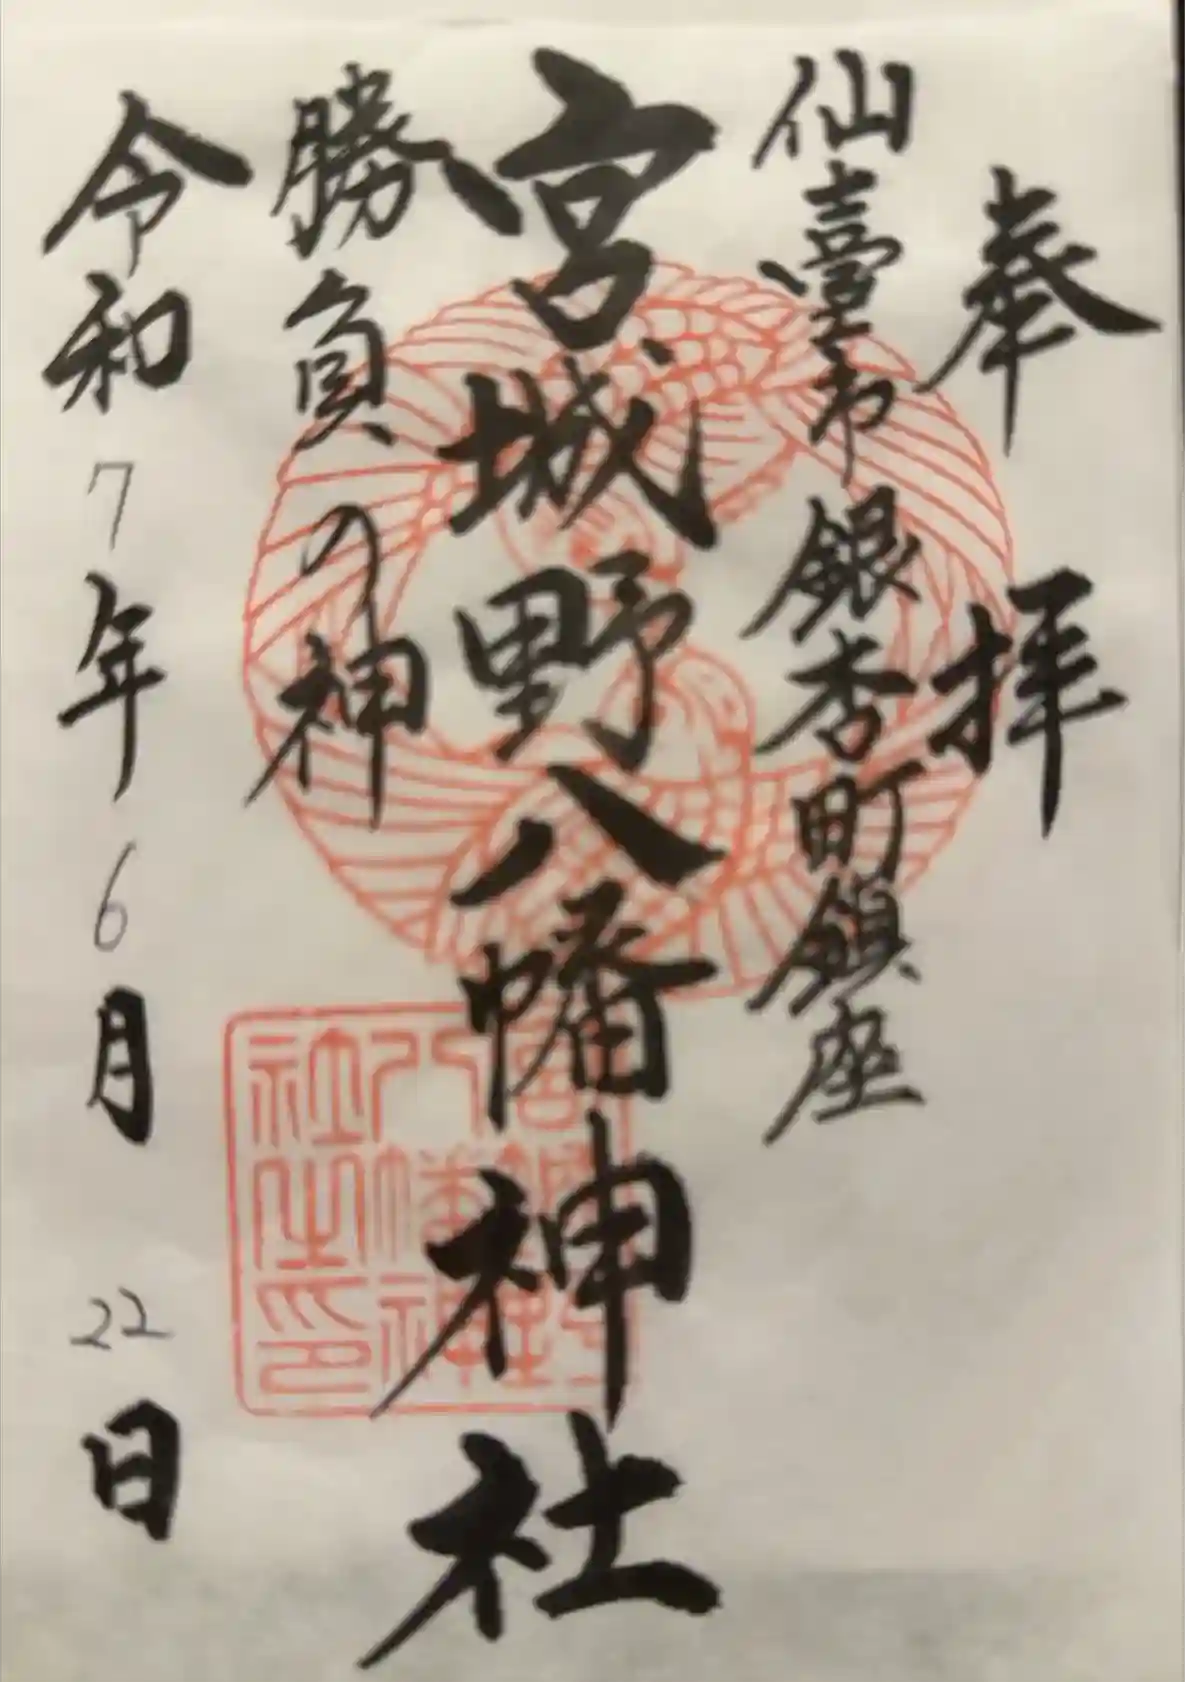 奉拝
仙臺市銀杏町鎮座
宮城野八幡神社
勝負の神
令和7年6月22日
宮城野
八幡神
社之印